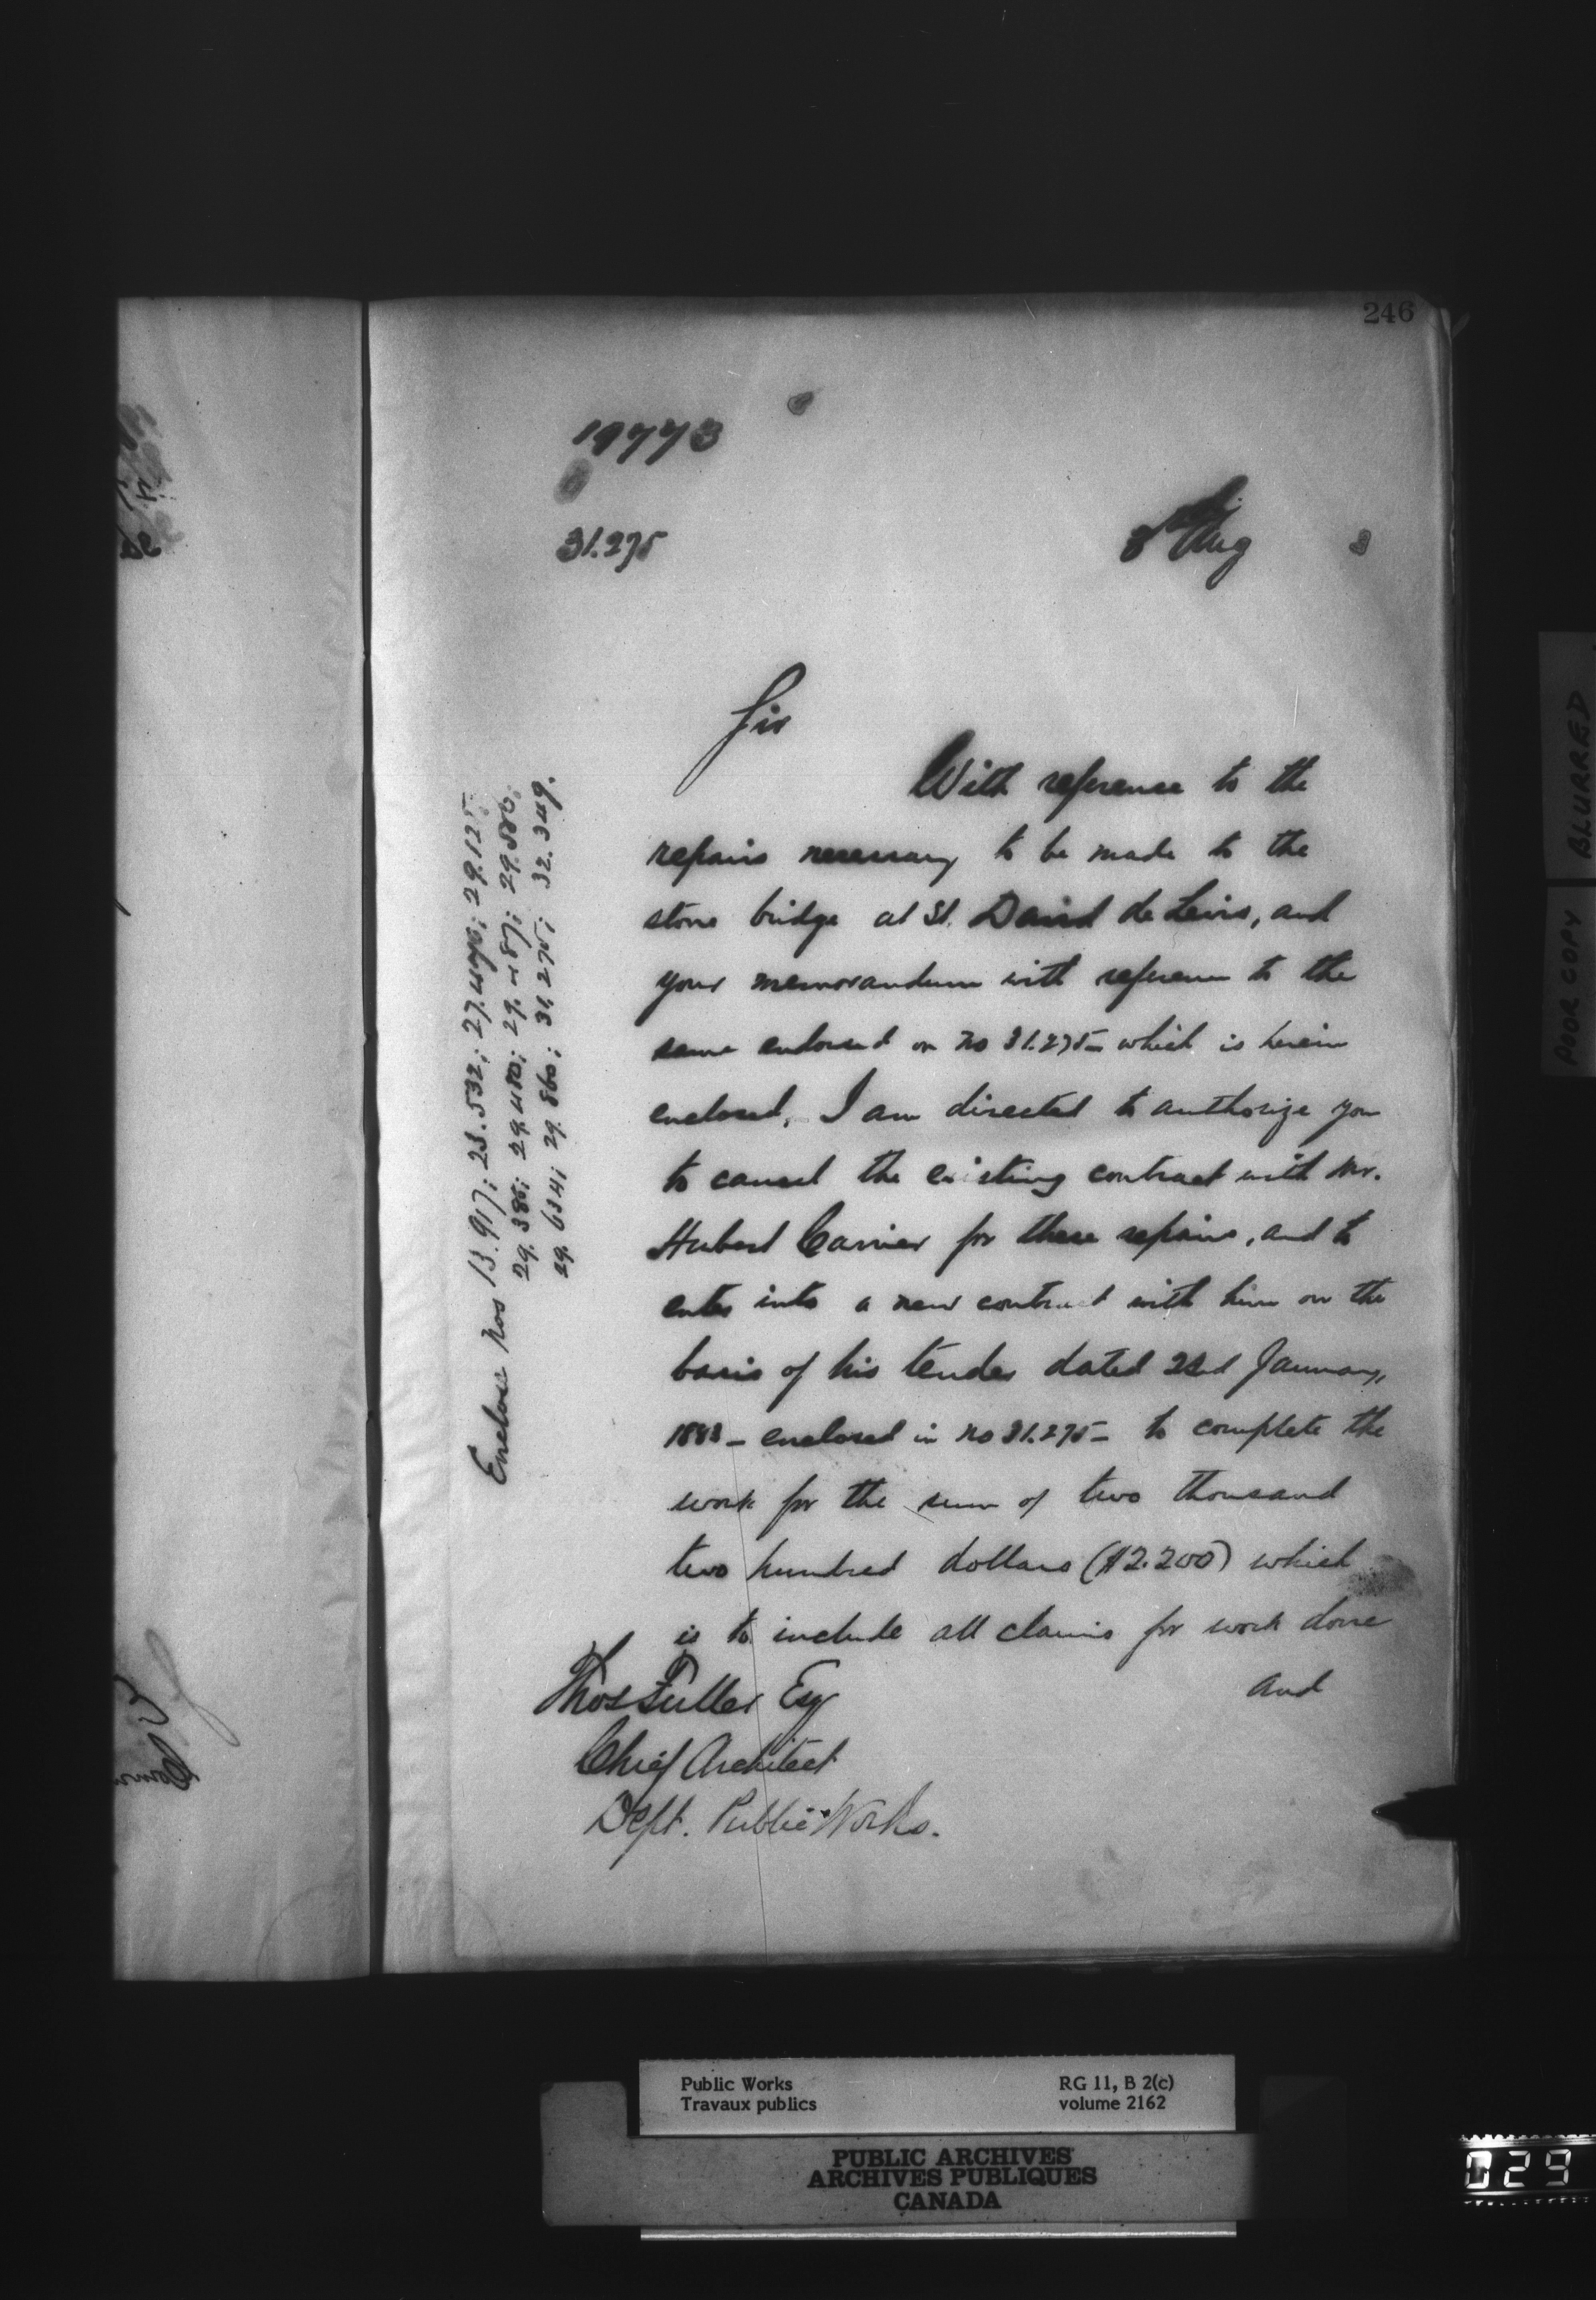 246
19773
31.275
8th Aug 3
Sir
With reference to the
repairs necessary to be made to the
stone bridge at St. David de Levis, and
your memorandum with reference to the
same endorsed on no 31.275 - which is herein
enclosed, I am directed to authorize you
to cancel the existing contract with Mr.
Hubert Carrier for these repairs, and to
enter into a new contract with him on the
basis of his tender dated 22nd January,
1883 - enclosed in no 31.275 - to complete the
work for the sum of two thousand
two hundred dollars ($2.200) which
is to include all claims for work done
and
Thos Fuller Esq
Chief Architect
Dept. Public Works.
Enclose nos 13.917; 23.532; 27.496; 29.125;
29.386; 29.480; 29.487; 29.580;
29.634; 29.860; 31.275; 32.349.
POOR COPY BLURRED
Public Works
Travaux publics
RG 11, B 2(c)
volume 2162
PUBLIC ARCHIVES
ARCHIVES PUBLIQUES
CANADA
029